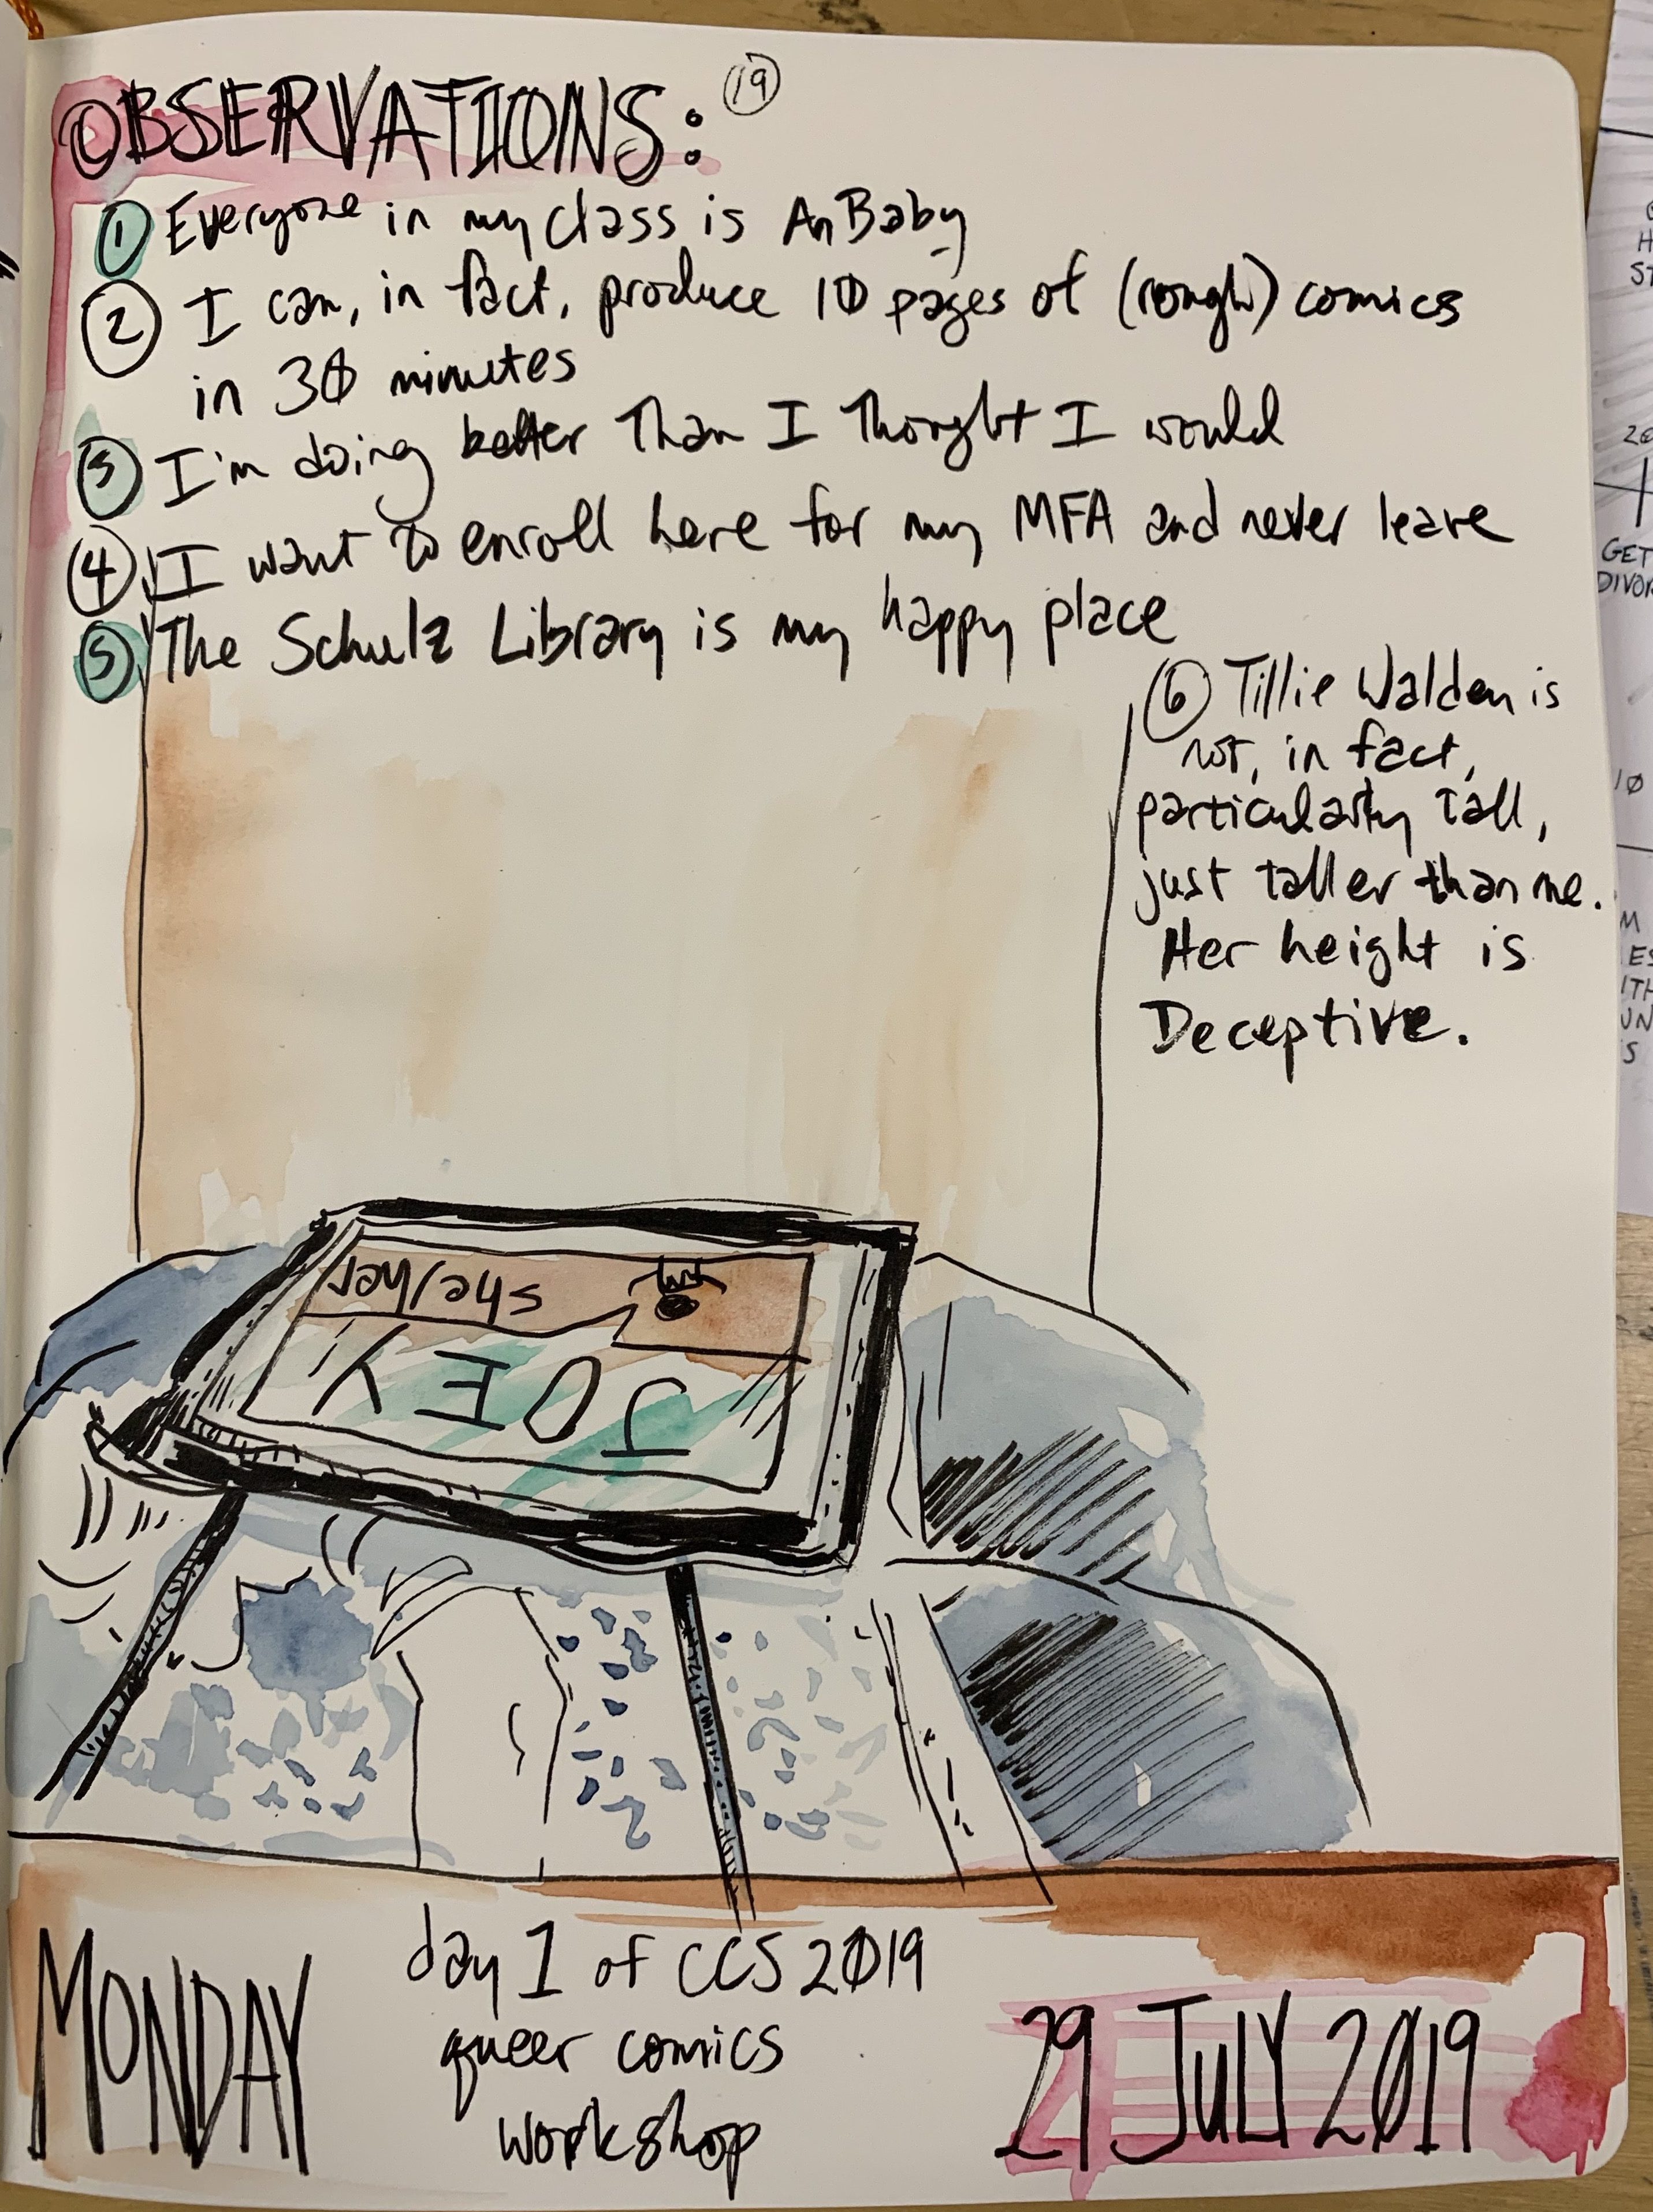 OBSERVATIONS: 19
1 Everyone in my class is An Baby
2 I can, in fact, produce 10 pages of (rough) comics
in 30 minutes
3 I'm doing better Than I Thought I would
4 I want to enroll here for my MFA and never leave
5 The Schulz Library is my happy place
6 Tillie Walden is
not, in fact,
particularly tall,
just taller than me.
Her height is
Deceptive.
she/her
JOEY
MONDAY
day 1 of CCS 2019
queer comics
workshop
29 JULY 2019
20
GET
DIVOR
10